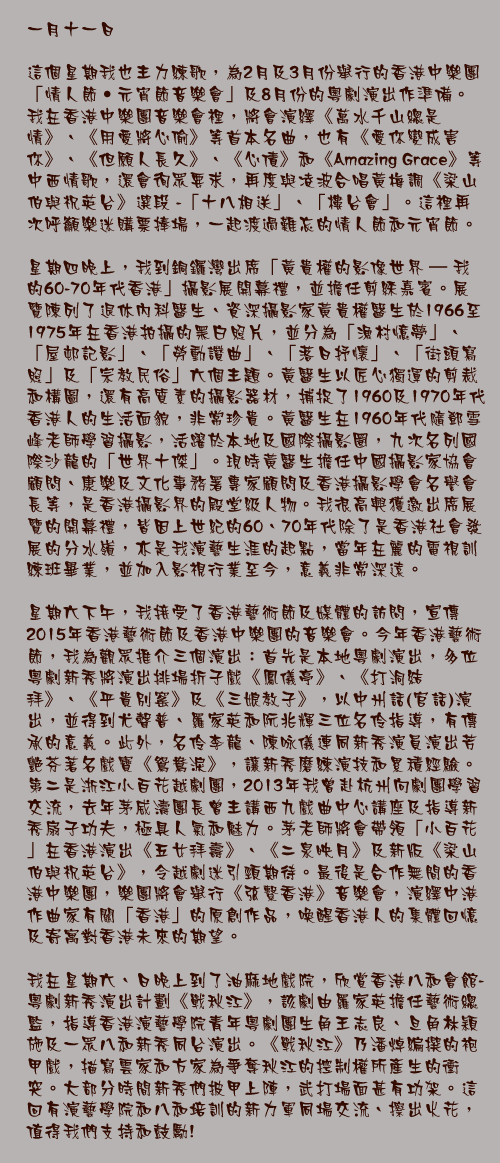 一月十一日
這個星期我也主力練歌，為2月及3月份舉行的香港中樂團
「情人節•元宵節音樂會」及8月份的粵劇演出作準備。
我在香港中樂團音樂會裡，將會演繹《萬水千山總是
情》、《用愛將心偷》等首本名曲，也有《愛你變成害
你》、《但願人長久》、《心債》和《Amazing Grace》等
中西情歌，還會徇眾要求，再度與凌波合唱黃梅調《梁山
伯與祝英台》選段 -「十八相送」、「樓台會」。這裡再
次呼籲樂迷購票捧場，一起渡過難忘的情人節和元宵節。
星期四晚上，我到銅鑼灣出席「黃貴權的影像世界 — 我
的60-70年代香港」攝影展開幕禮，並擔任剪綵嘉賓。展
覽陳列了退休內科醫生、資深攝影家黃貴權醫生於1966至
1975年在香港拍攝的黑白照片，並分為「漁村懷夢」、
「屋邨記影」、「勞動讚曲」、「老日抒懷」、「街頭寫
照」及「宗教民俗」六個主題。黃醫生以匠心獨運的剪裁
和構圖，還有高質素的攝影器材，捕捉了1960及1970年代
香港人的生活面貌，非常珍貴。黃醫生在1960年代隨鄧雪
峰老師學習攝影，活躍於本地及國際攝影圈，九次名列國
際沙龍的「世界十傑」。現時黃醫生擔任中國攝影家協會
顧問、康樂及文化事務署專家顧問及香港攝影學會名譽會
長等，是香港攝影界的殿堂級人物。我很高興獲邀出席展
覽的開幕禮，皆因上世紀的60、70年代除了是香港社會發
展的分水嶺，亦是我演藝生涯的起點，當年在麗的電視訓
練班畢業，並加入影視行業至今，意義非常深遠。
星期六下午，我接受了香港藝術節及媒體的訪問，宣傳
2015年香港藝術節及香港中樂團的音樂會。今年香港藝術
節，我為觀眾推介三個演出：首先是本地粵劇演出，多位
粵劇新秀將演出排場折子戲《鳳儀亭》、《打洞結
拜》、《平貴別窰》及《三娘教子》，以中州話(官話)演
出，並得到尤聲普、羅家英和阮兆輝三位名伶指導，有傳
承的意義。此外，名伶李龍、陳咏儀連同新秀演員演出芳
艷芬著名戲寶《鴛鴦淚》，讓新秀磨練演技和累積經驗。
第二是浙江小百花越劇團，2013年我曾赴杭州向劇團學習
交流，去年茅威濤團長曾主講西九戲曲中心講座及指導新
秀扇子功夫，極具人氣和魅力。茅老師將會帶領「小百花
」在香港演出《五女拜壽》、《二泉映月》及新版《梁山
伯與祝英台》，令越劇迷引頸期待。最後是合作無間的香
港中樂團，樂團將會舉行《弦聲香港》音樂會，演繹中港
作曲家有關「香港」的原創作品，喚醒香港人的集體回憶
及寄寓對香港未來的期望。
我在星期六、日晚上到了油麻地戲院，欣賞香港八和會館-
粵劇新秀演出計劃《戰秋江》，該劇由羅家英擔任藝術總
監，指導香港演藝學院青年粵劇團生角王志良、旦角林穎
施及一眾八和新秀同台演出。《戰秋江》乃潘焯編撰的袍
甲戲，描寫雲家和方家為爭奪秋江的控制權所產生的衝
突。大部分時間新秀們披甲上陣，武打場面甚有功架。這
回有演藝學院和八和培訓的新力軍同場交流、擦出火花，
值得我們支持和鼓勵!